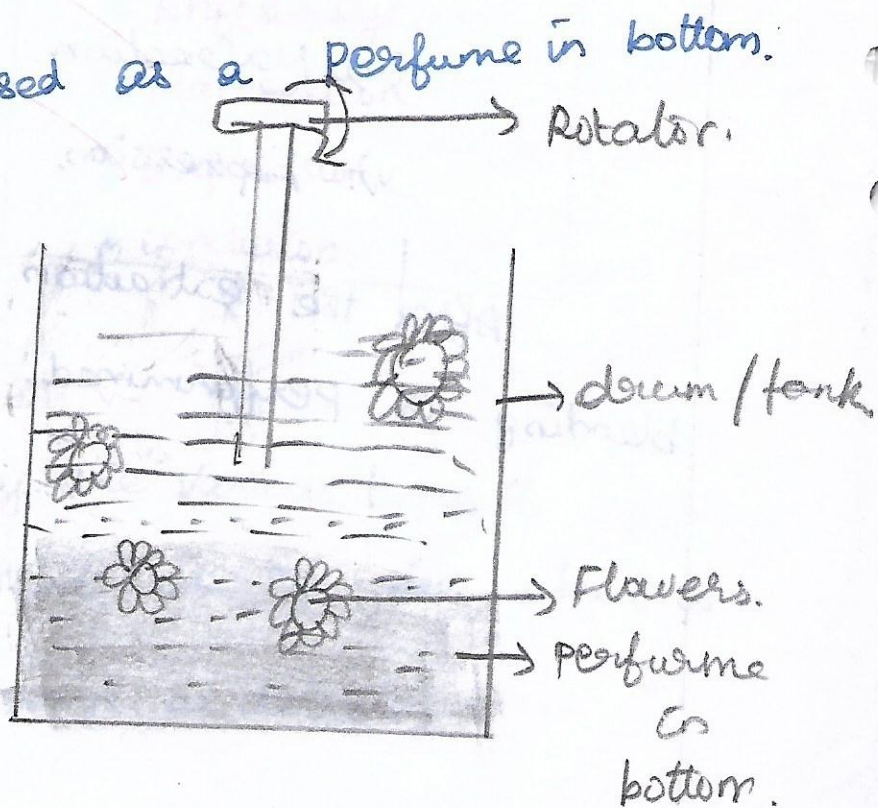 sed as a perfume in bottom.
Rotator.
drum / tank
Flowers.
perfurme
in
bottom.